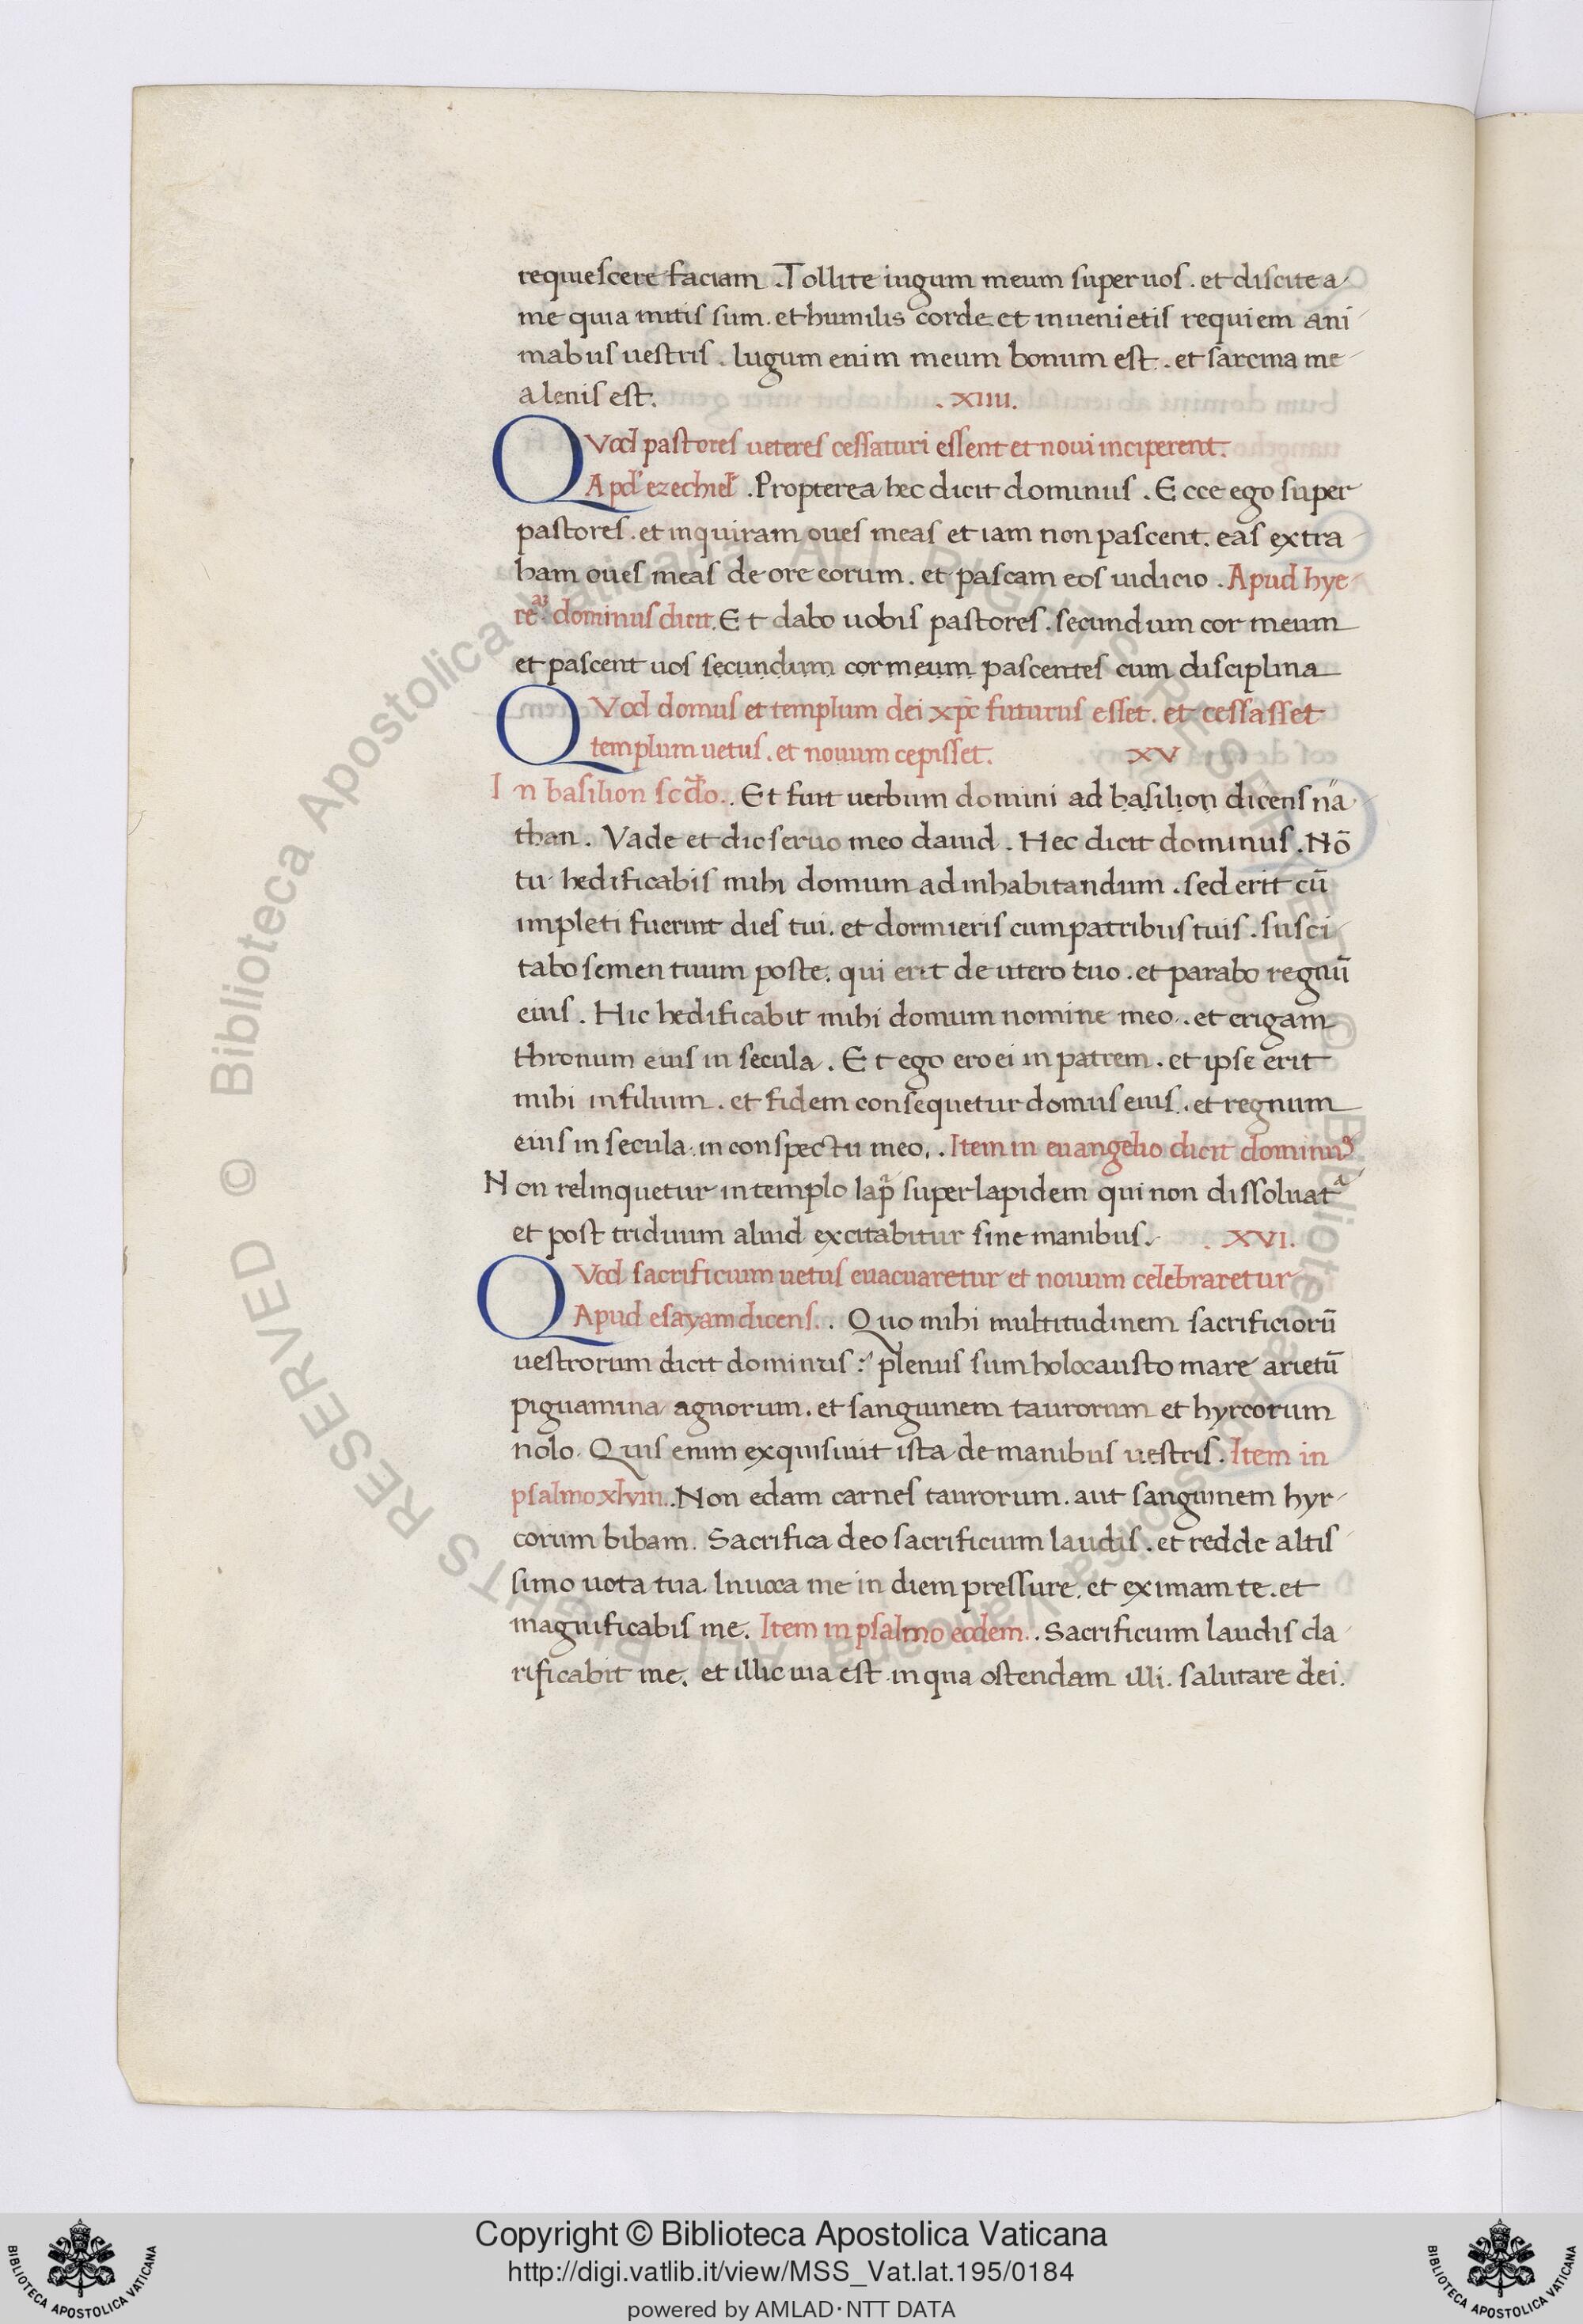 requiescere faciam . Tollite iugum meum super uos . et discite a
me quia mitis sum . et humilis corde et inuenietis requiem ani
mabus uestris . Iugum enim meum bonum est . et sarcina me
a lenis est . . XIIII .
QVod pastores ueteres cessaturi essent et noui inciperent .
Apd' ezechieł . Propterea hec dicit dominus . Ecce ego super
pastores . et inquiram oues meas et iam non pascent . eas extra
ham oues meas de ore eorum . et pascam eos iudicio . Apud hye
re. dominus dicit . Et dabo uobis pastores . secundum cor meum
et pascent uos secundum cor meum pascentes cum disciplina
QVod domus et templum dei xp̄c futurus esset . et cessasset
templum uetus . et nouum cepisset . XV
In basilion scđo . . Et fuit uerbum domini ad basilion dicens na
than . Vade et dic seruo meo dauid . Hec dicit dominus . Nō
tu hedificabis mihi domum ad inhabitandum . sed erit cū
impleti fuerint dies tui . et dormieris cum patribus tuis . susci
tabo semen tuum poste . qui erit de utero tuo . et parabo regnū
eius . Hic hedificabit mihi domum nomine meo . . et erigam
thronum eius in secula . Et ego ero ei in patrem . et ipse erit
mihi in filium . et fidem consequetur domus eius . et regnum
eius in secula in conspectu meo . . Item in euangelio dicit dominꝰ
Non relinquetur in templo lap̄ super lapidem qui non dissoluat̄
et post triduum aliud excitabitur sine manibus . . XVI .
QVod sacrificium uetus euacuaretur et nouum celebraretur
Apud esayam dicens . . Quo mihi multitudinem sacrificiorū
uestrorum dicit dominus : plenus sum holocausto mare arietū
piguamina agnorum . et sanguinem taurorum et hyrcorum
nolo . Quis enim exquisiuit ista de manibus uestris . Item in
psalmo xlviiii . . Non edam carnes taurorum . aut sanguinem hyr
corum bibam . Sacrifica deo sacrificium laudis . et redde altis
simo uota tua . Inuoca me in diem pressure . et eximam te . et
magnificabis me . Item in psalmo eodem . . Sacrificium laudis cla
rificabit me . et illic uia est in qua ostendam illi . salutare dei .
© Biblioteca Apostolica Vaticana ALL RIGHTS RESERVED © Biblioteca Apostolica Vaticana ALL RIGHTS RESERVED
Copyright © Biblioteca Apostolica Vaticana
http://digi.vatlib.it/view/MSS_Vat.lat.195/0184
powered by AMLAD·NTT DATA
BIBLIOTECA APOSTOLICA VATICANA
BIBLIOTECA APOSTOLICA VATICANA